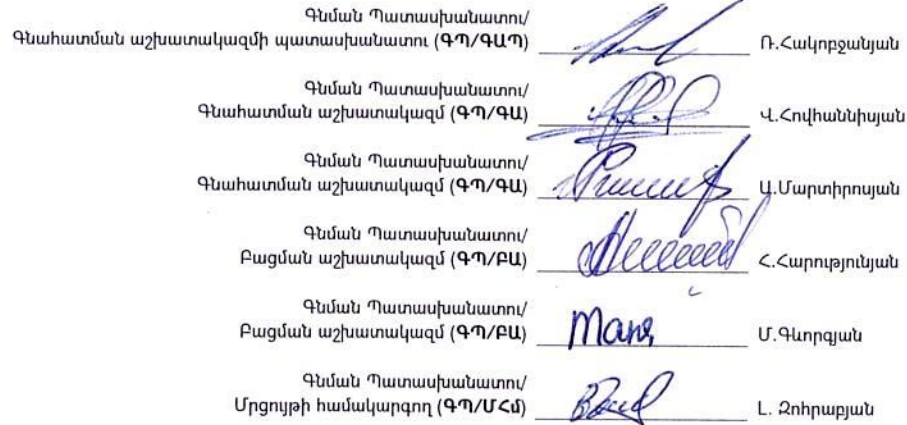 Գնման Պատասխանատու/
Գնահատման աշխատակազմի պատասխանատու (ԳՊ/ԳԱՊ) Ռ.Հակոբջանյան
Գնման Պատասխանատու/
Գնահատման աշխատակազմ (ԳՊ/ԳԱ) Վ.Հովհաննիսյան
Գնման Պատասխանատու/
Գնահատման աշխատակազմ (ԳՊ/ԳԱ) Ա.Մարտիրոսյան
Գնման Պատասխանատու/
Բացման աշխատակազմ (ԳՊ/ԲԱ) Հ.Հարությունյան
Գնման Պատասխանատու/
Բացման աշխատակազմ (ԳՊ/ԲԱ) Մ.Գևորգյան
Գնման Պատասխանատու/
Մրցույթի համակարգող (ԳՊ/ՄՀմ) Լ. Զոհրաբյան